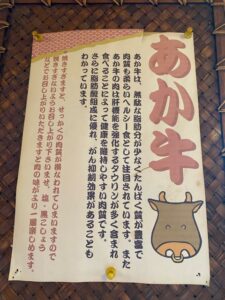 あか牛
あか牛は、無駄な脂肪分が少なくたんぱく質が豊富で
肉質も柔らいヘルシー食として注目されています。また
あか牛の肉は肝機能を強化するタウリンが多く含まれ
食べることによって健康を維持しやすい肉質です。
さらに脂肪酸組成に優れ、がん抑制効果があることも
わかっています。
焼きすぎますと、せっかくの肉質が損なわれてしまいますので
焼きすぎないようお召し上がり下さいませ。塩・黒こしょう
などでお召し上がりいただきますと肉の味がより一層楽しめます。